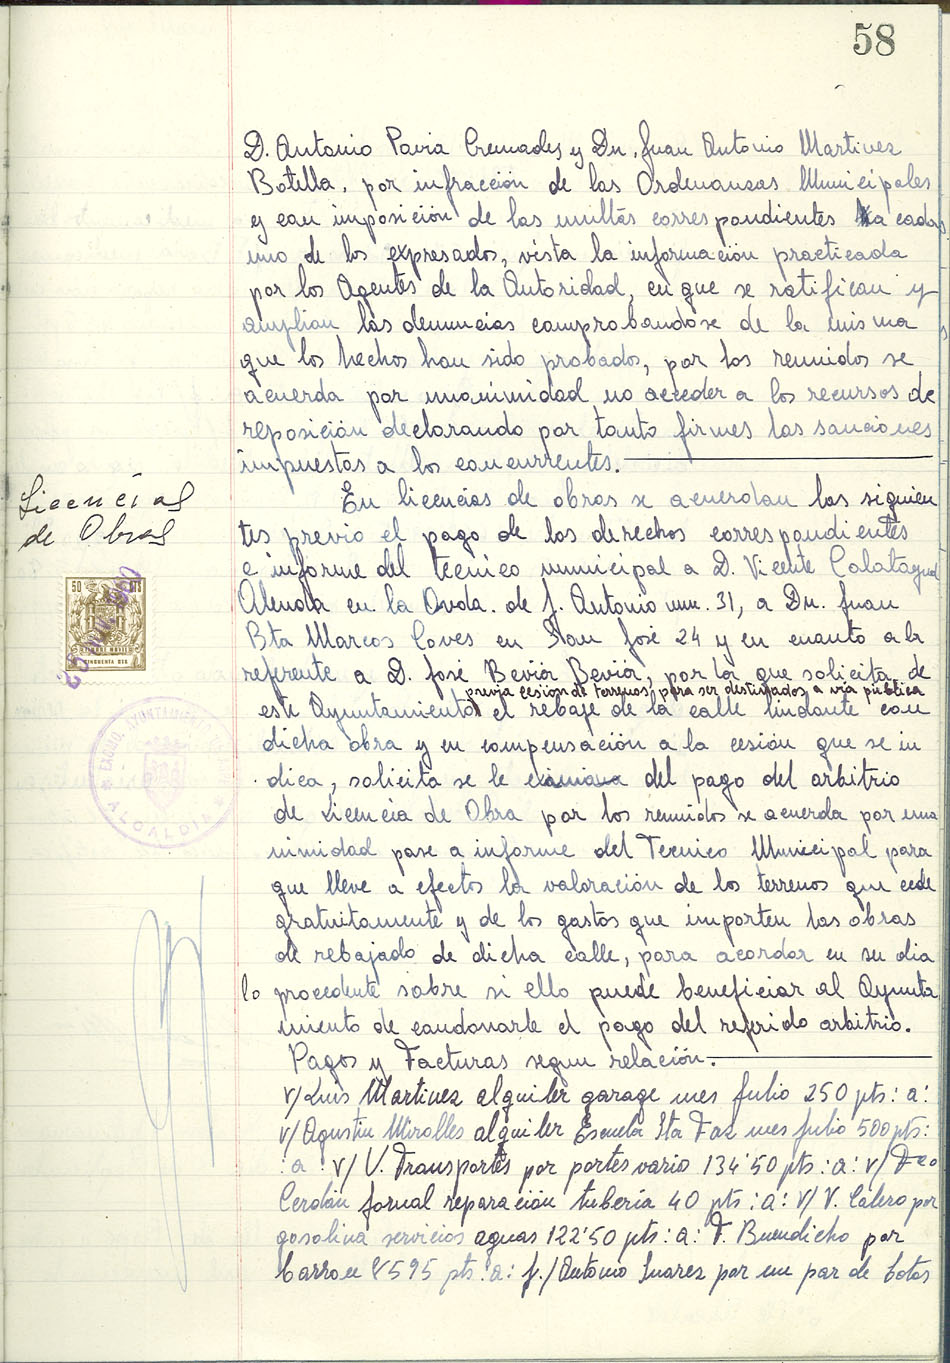 58
D. Antonio Pavia Cremades y Dn. Juan Antonio Martinez
Botella, por infracción de las Ordenanzas Municipales
y con imposición de las multas correspondientes a cada
uno de los expresados, vista la información practicada
por los Agentes de la Autoridad, en que se ratifican y
amplian las denuncias comprobandose de la misma
que los hechos han sido probados, por los reunidos se
acuerda por unanimidad no acceder a los recursos de
reposición declarando por tanto firmes las sanciones
impuestas a los concurrentes.
Licencias
de Obras
En licencias de obras se acuerdan las siguien
tes previo el pago de los derechos correspondientes
e informe del tecnico municipal a D. Vicente Calatayud
en la Avda. de J. Antonio num. 31, a Dn. Juan
Bta Marcos Coves en San José 24 y en cuanto a la
referente a D. José Beviá Beviá, por la que solicita de
previa cesion de terrenos, para ser destinados a via pública
este Ayuntamiento el rebaje de la calle lindante con
dicha obra y en compensación a la cesión que se in
dica, solicita se le exima del pago del arbitrio
de Licencia de Obra por los reunidos se acuerda por una
nimidad pase a informe del Tecnico Municipal para
que lleve a efectos la valoración de los terrenos que cede
gratuitamente y de los gastos que importen las obras
de rebajado de dicha calle, para acordar en su dia
lo procedente sobre si ello puede beneficiar al Ayunta
miento de condonarle el pago del referido arbitrio.
Pagos y Facturas segun relación.
v/ Luis Martinez alquiler garage mes Julio 250 pts: a:
v/ Agustin Miralles alquiler Escuela Sta Faz mes Julio 500 pts:
: a: v/ V. Transportes por portes vario 134'50 pts: a: v/ Fco
Cerdán jornal reparación tuberia 40 pts: a: v/ V. Calero por
gasolina servicios aguas 122'50 pts: a: F. Buendicho por
595 pts: a: J./ Antonio Suarez por un par de botas
50 PTS
CINCUENTA PTS
EXCMO. AYUNTAMIENTO
ALCALDIA